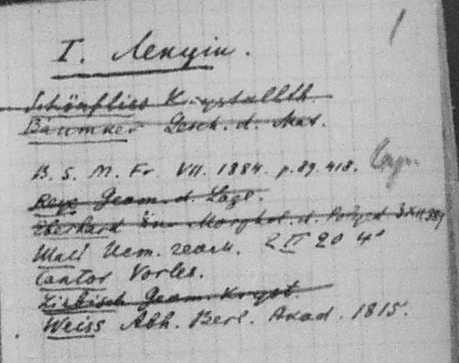 1
I. Лекции.
Schönflies Krystallth.
Bäumker Gesch. d. Mat.
B. S. M. Fr. VII. 1884. p. 89. 418.
Reye Geom. d. Lage.
Eberhard Zur Morphol. d. Polyed
Шаль Ист. геом. 2 II 20 4°
Cantor Vorles.
Liebisch Geom. Kryst.
Weiss Abh. Berl. Akad. 1815.